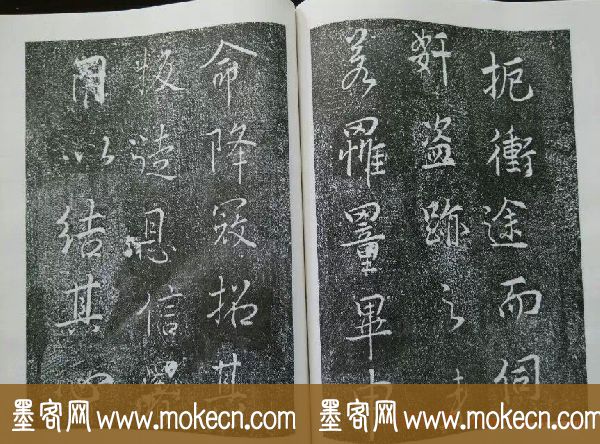 扼衝途而伺
奸盜跡之
若罹罿罼
命降寇招其
叛徒恩信
用以結其
墨客网 www.mokecn.com
墨客网 www.mokecn.com